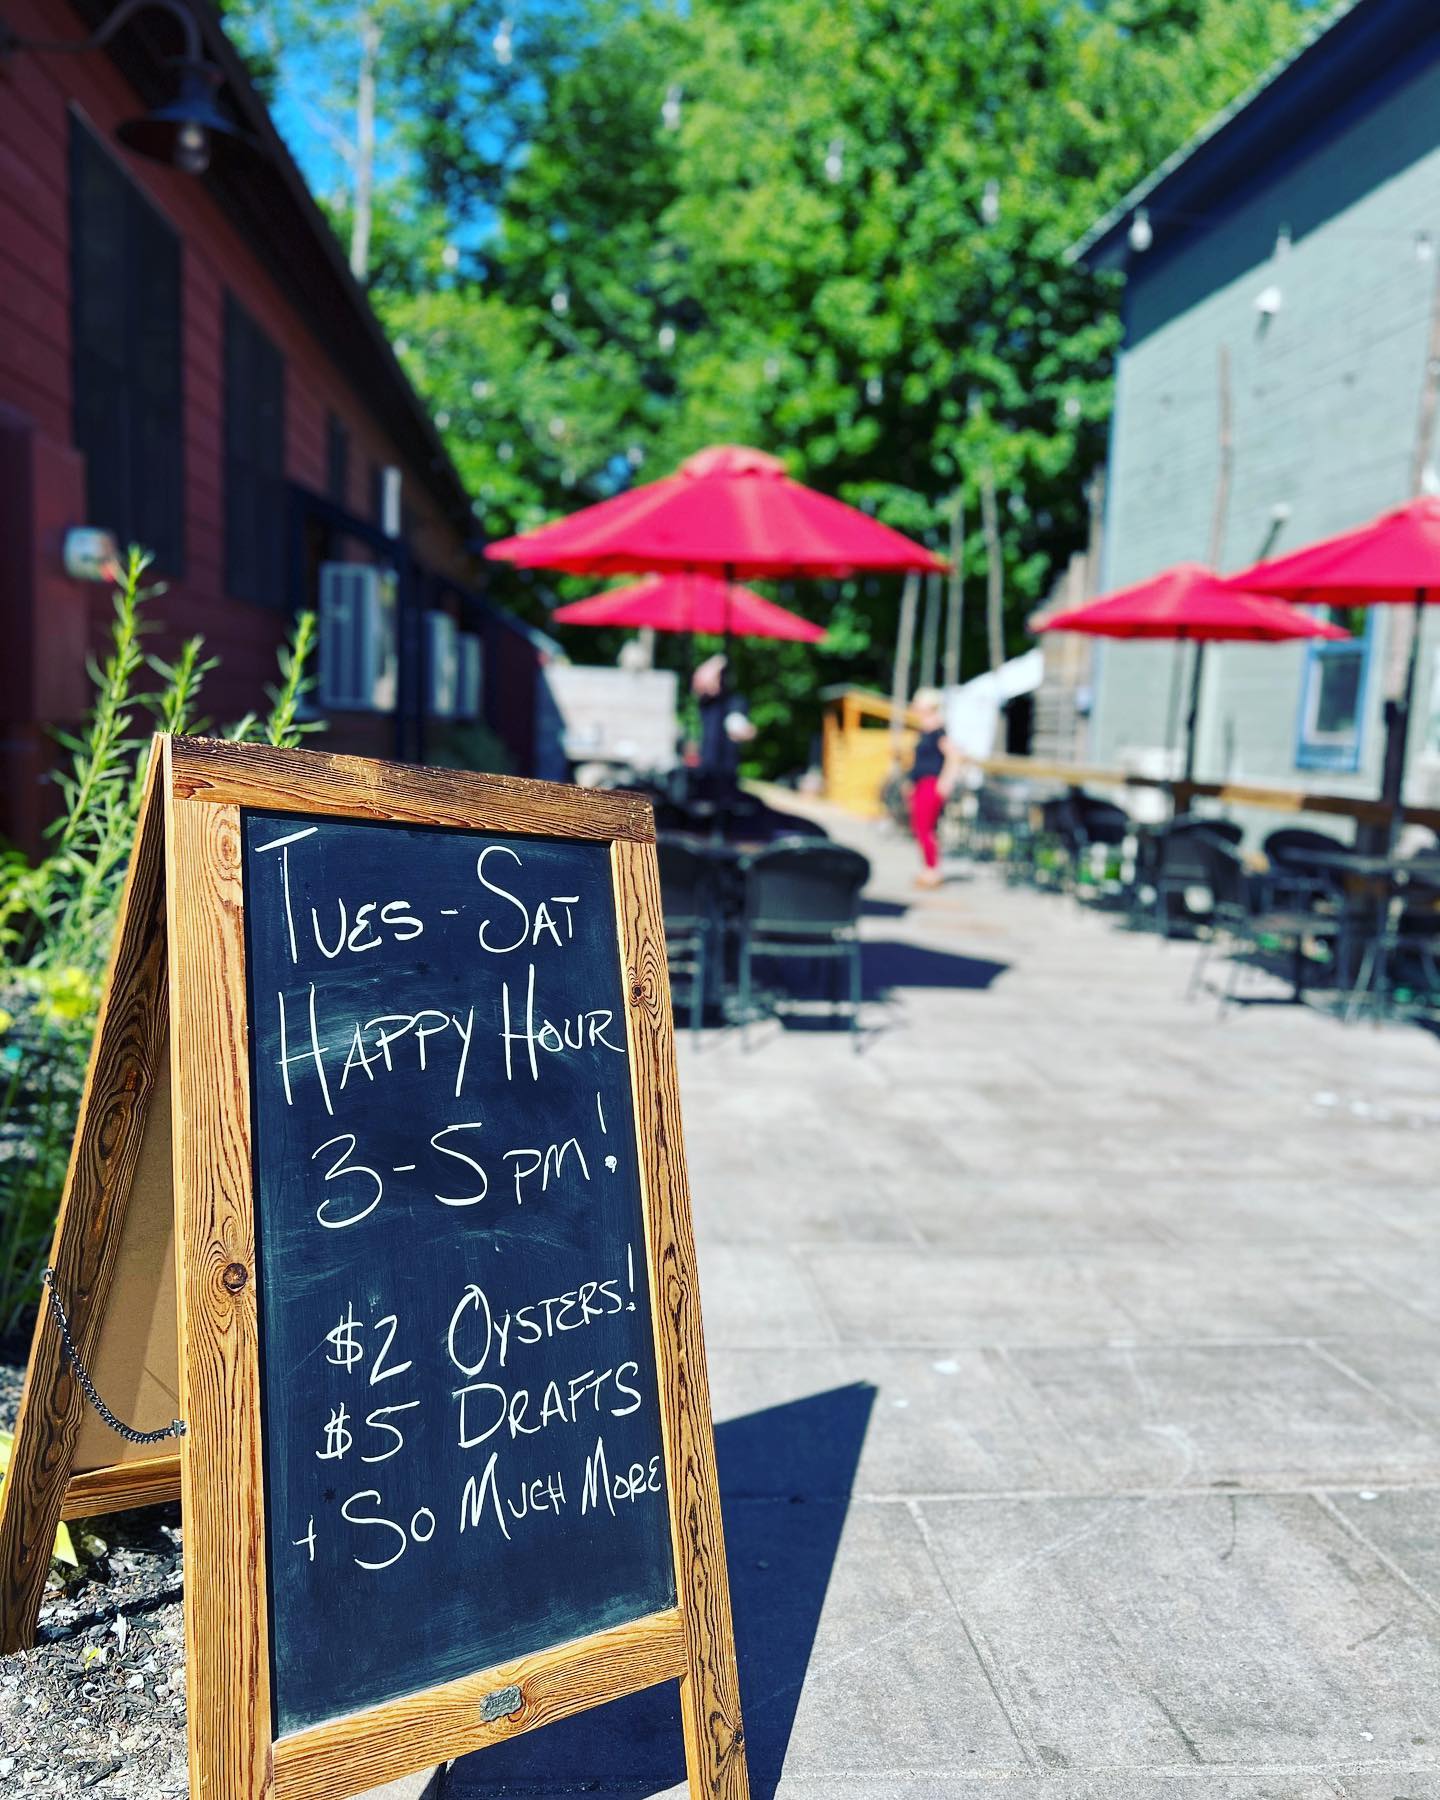 Tues - Sat
Happy Hour
3-5pm!
$2 Oysters!
$5 Drafts
+ So Much More